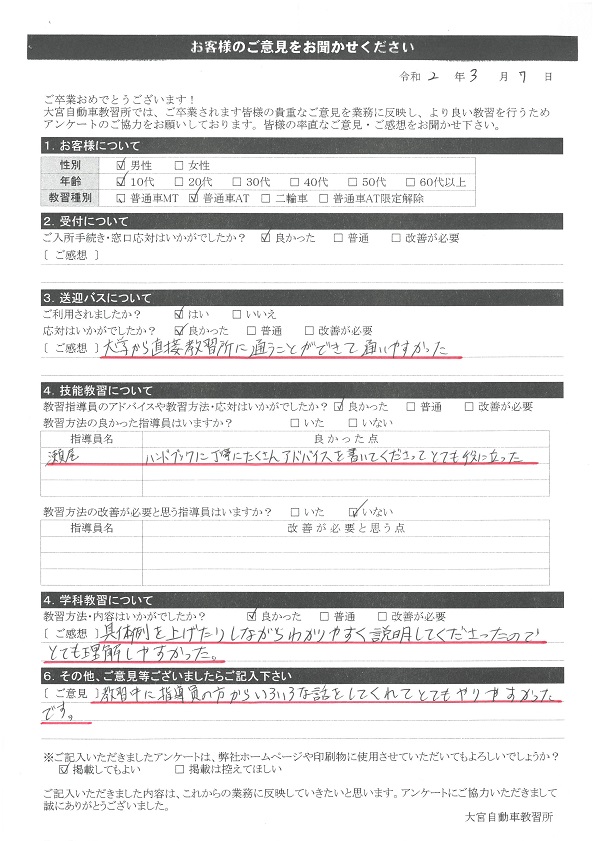 お客様のご意見をお聞かせください
令和 2 年 3 月 7 日
ご卒業おめでとうございます！
大宮自動車教習所では、ご卒業されます皆様の貴重なご意見を業務に反映し、より良い教習を行うため
アンケートのご協力をお願いしております。皆様の率直なご意見・ご感想をお聞かせ下さい。
1. お客様について
性別 ☑ 男性 □ 女性
年齢 ☑ 10代 □ 20代 □ 30代 □ 40代 □ 50代 □ 60代以上
教習種別 □ 普通車MT ☑ 普通車AT □ 二輪車 □ 普通車AT限定解除
2. 受付について
ご入所手続き・窓口応対はいかがでしたか？ ☑ 良かった □ 普通 □ 改善が必要
〔 ご感想 〕
3. 送迎バスについて
ご利用されましたか？ ☑ はい □ いいえ
応対はいかがでしたか？ ☑ 良かった □ 普通 □ 改善が必要
〔 ご感想 〕大学から直接教習所に通うことができて通いやすかった
4. 技能教習について
教習指導員のアドバイスや教習方法・応対はいかがでしたか？ ☑ 良かった □ 普通 □ 改善が必要
教習方法の良かった指導員はいますか？ □ いた □ いない
指導員名 良かった点
瀬尾 ハンドブックに丁寧にたくさんアドバイスを書いてくださってとても役に立った
教習方法の改善が必要と思う指導員はいますか？ □ いた ☑ いない
指導員名 改善が必要と思う点
4. 学科教習について
教習方法・内容はいかがでしたか？ ☑ 良かった □ 普通 □ 改善が必要
〔 ご感想 〕具体例を上げたりしながらわかりやすく説明してくださったので
とても理解しやすかった。
6. その他、ご意見等ございましたらご記入下さい
〔 ご意見 〕教習中に指導員の方からいろいろな話をしてくれてとてもやりやすかった
です。
※ご記入いただきましたアンケートは、弊社ホームページや印刷物に使用させていただいてもよろしいでしょうか？
☑ 掲載してもよい □ 掲載は控えてほしい
ご記入いただきました内容は、これからの業務に反映していきたいと思います。アンケートにご協力いただきまして
誠にありがとうございました。
大宮自動車教習所